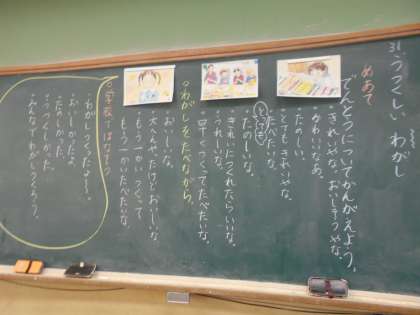 31 うつくしい わがし
めあて
でんとうについてかんがえよう。
・きれいやな。おいしそうやな。
・かわいいなあ。
・たのしい。
・とてもきれいやな。
・たべたいな。
・たのしいな。
・きれいにつくれたらいいな。
・うれしいな。
・早くつくってたべたいな。
○わがしをたべながら。
・おいしいな。
・大へんやけどおいしいな。
・もう一かいつくって
もう一かいたべたいな。
○学校ではなそう
わがしつくったよ〜。
・おいしかったよ
・たのしかった。
・うつくしかった。
・みんなでわがしつくろう。